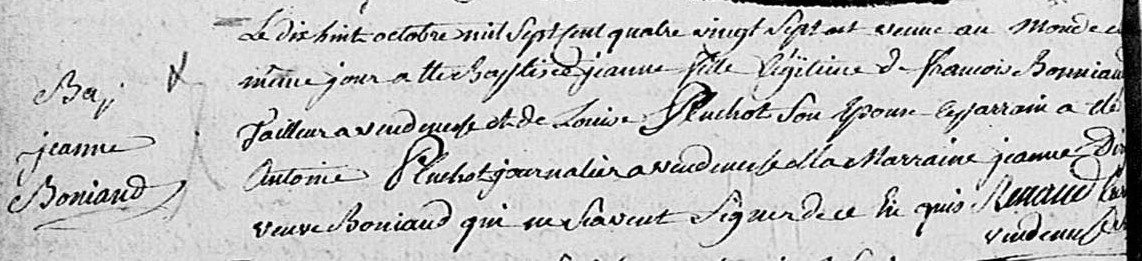 Bap
jeanne
Boniaud
Le dix huit octobre mil sept cent quatre vingt sept est venue au monde ce
même jour a ette baptisée jeanne fille légitime de francois Bonniaud
Tailleur a vendenesse et de Louise Pluchot son Epouse le parrain a eté
Antoine Pluchot journalier a vendenesse et la Marraine jeanne
veuve Boniaud qui ne savent signer de ce En quis Renaud
vendenesse